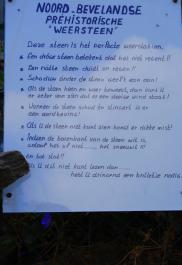 NOORD-BEVELANDSE
PREHISTORISCHE
"WEERSTEEN"
Deze steen is het perfecte weerstation.
Een droge steen betekent dat het niet regent!!
Een natte steen duidt op regen!!
Schaduw onder de steen geeft zon aan!
Als de steen heen en weer beweegt, dan kunt U
er zeker van zijn dat er een stevige wind staat!
Wanneer de steen schud en slingert is er
een aardbeving!
Als U de steen niet kunt zien hangt er dikke mist!
Indien de bovenkant van de steen wit is,
gelooft het of niet......, het sneeuwt!!
En tot slot!!
Als U dit niet kunt lezen dan.....
hebt U dringend een brilletje nodig